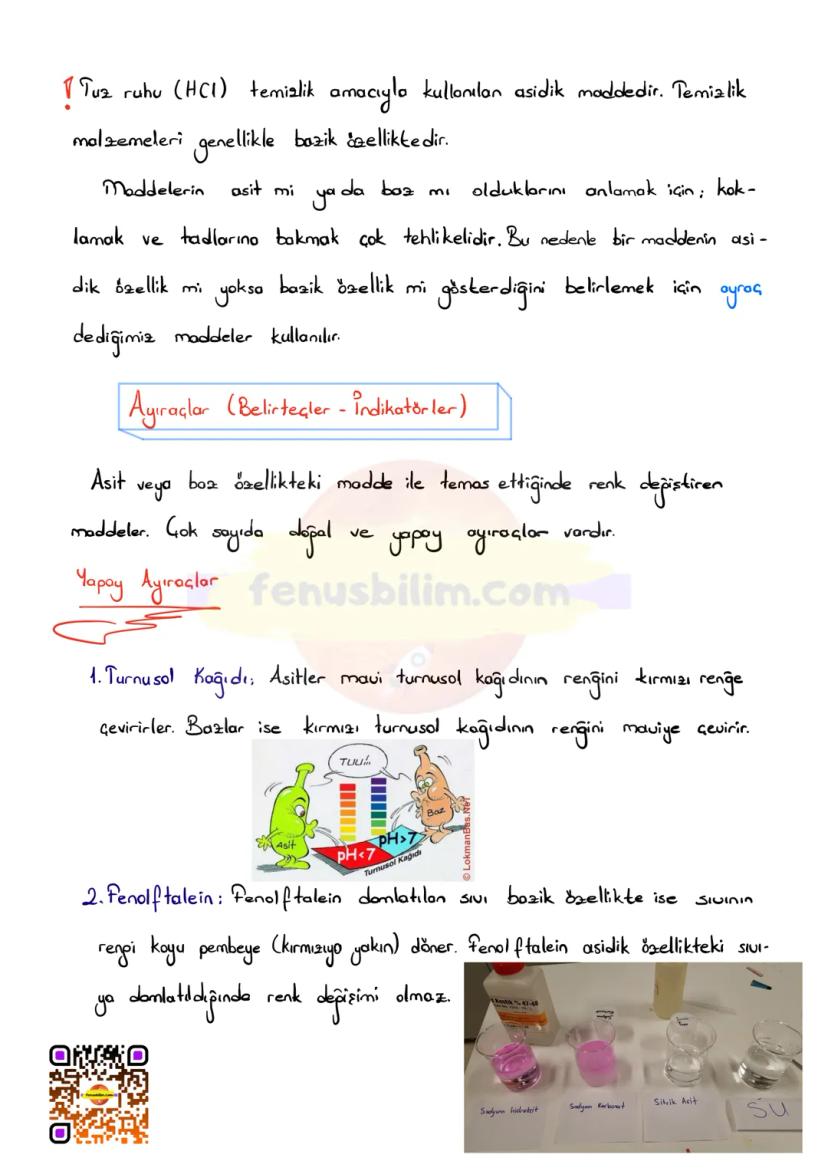 ! Tuz ruhu (HCl) temizlik amacıyla kullanılan asidik maddedir. Temizlik
malzemeleri genellikle bazik özelliktedir.
Maddelerin asit mi ya da baz mı olduklarını anlamak için; kok-
lamak ve tadlarına bakmak çok tehlikelidir. Bu nedenle bir maddenin asi-
dik özellik mi yoksa bazik özellik mi gösterdiğini belirlemek için ayraç
dediğimiz maddeler kullanılır.
Ayıraçlar (Belirteçler - İndikatörler)
Asit veya baz özellikteki madde ile temas ettiğinde renk değiştiren
maddeler. Çok sayıda doğal ve yapay ayıraçlar vardır.
Yapay Ayıraçlar
fenusbilim.com
1. Turnusol Kağıdı; Asitler mavi turnusol kağıdının rengini kırmızı renge
çevirirler. Bazlar ise kırmızı turnusol kağıdının rengini maviye çevirir.
TUU!..
Asit
Baz
pH<7
pH>7
Turnusol Kağıdı
© LokmanBas.Net
2. Fenolftalein: Fenolftalein damlatılan sıvı bazik özellikte ise sıvının
rengi koyu pembeye (kırmızıya yakın) döner. Fenolftalein asidik özellikteki sıvı-
ya damlatıldığında renk değişimi olmaz.
Kostik % 47-48
Sodyum hidroksit
Sodyum Karbonat
Sitrik Asit
SU
fenusbilim.com